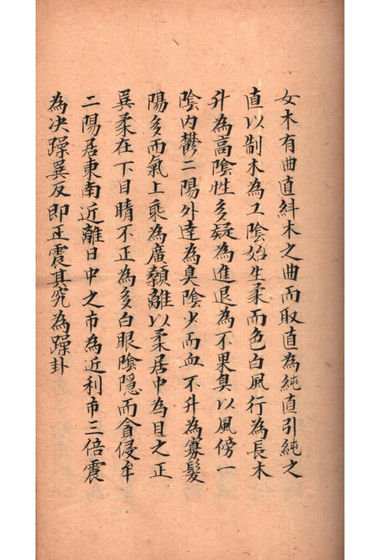 女木有曲直斜木之曲而取直為純直引純之
直以制木為工陰始生柔而色白風行為長木
升為高陰性多疑為進退為不果臭以風傍一
陰內鬱二陽外達為臭陰少而血不升為寡髮
陽多而氣上乘為廣顙離以柔居中為目之正
巽柔在下目睛不正為多白眼陰隱而貪侵牟
二陽居東南近離日中之市為近利市三倍震
為决躁巽反即正震其究為躁卦